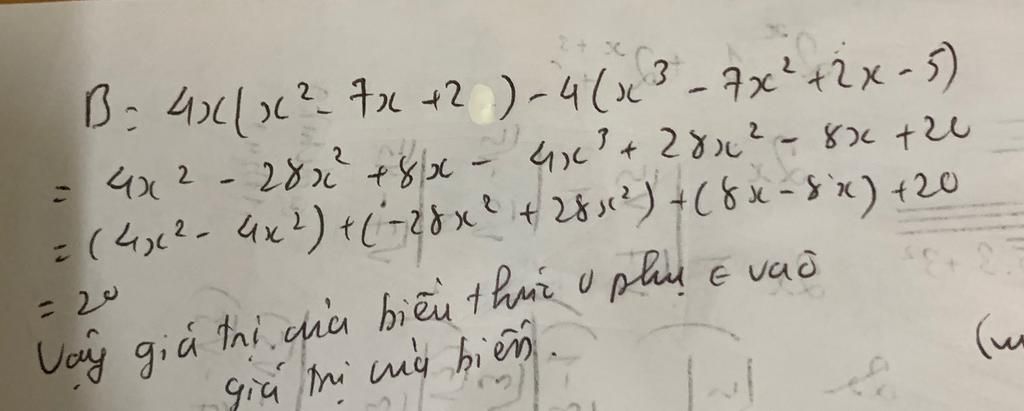 B = 4x(x² - 7x + 2) - 4(x³ - 7x² + 2x - 5)
= 4x² - 28x² + 8x - 4x³ + 28x² - 8x + 20
= (4x² - 4x²) + (-28x² + 28x²) + (8x - 8x) + 20
= 20
Vậy giá trị của biểu thức 0 phụ ∈ vaò
giá trị của biến.